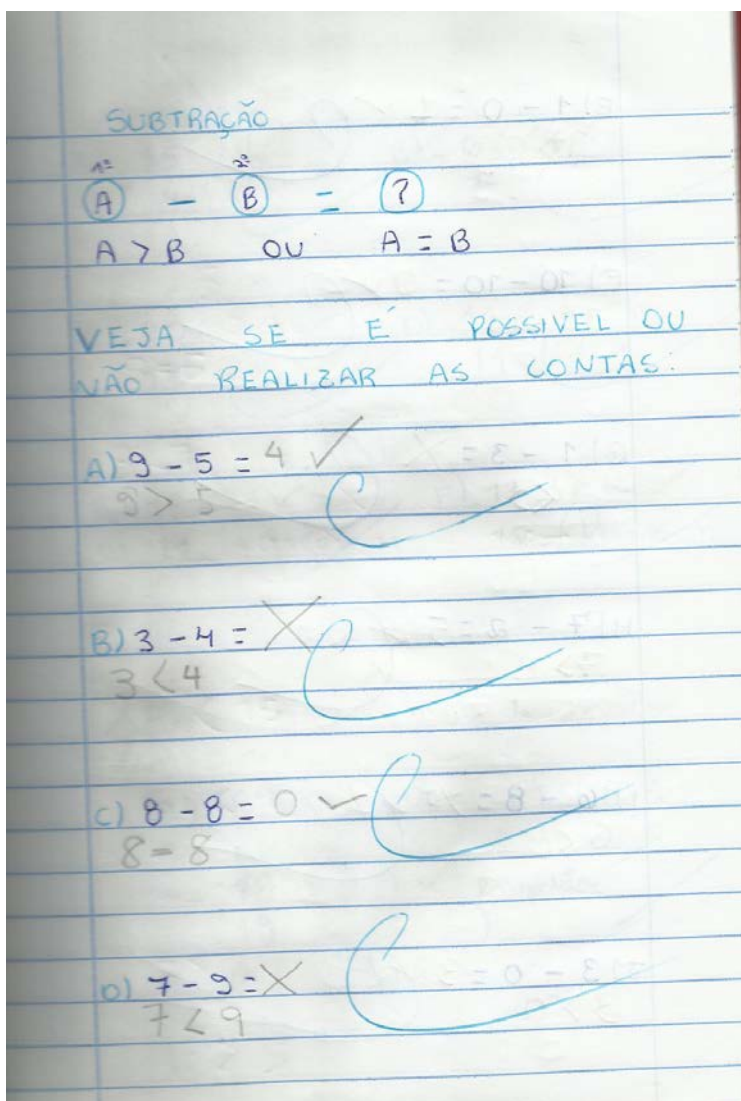 SUBTRAÇÃO
1º 2º
A - B = ?
A > B OU A = B
VEJA SE É POSSIVEL OU
NÃO REALIZAR AS CONTAS:
A) 9 - 5 = 4 ✓
9 > 5
B) 3 - 4 = X
3 < 4
C) 8 - 8 = 0 ✓
8 = 8
D) 7 - 9 = X
7 < 9